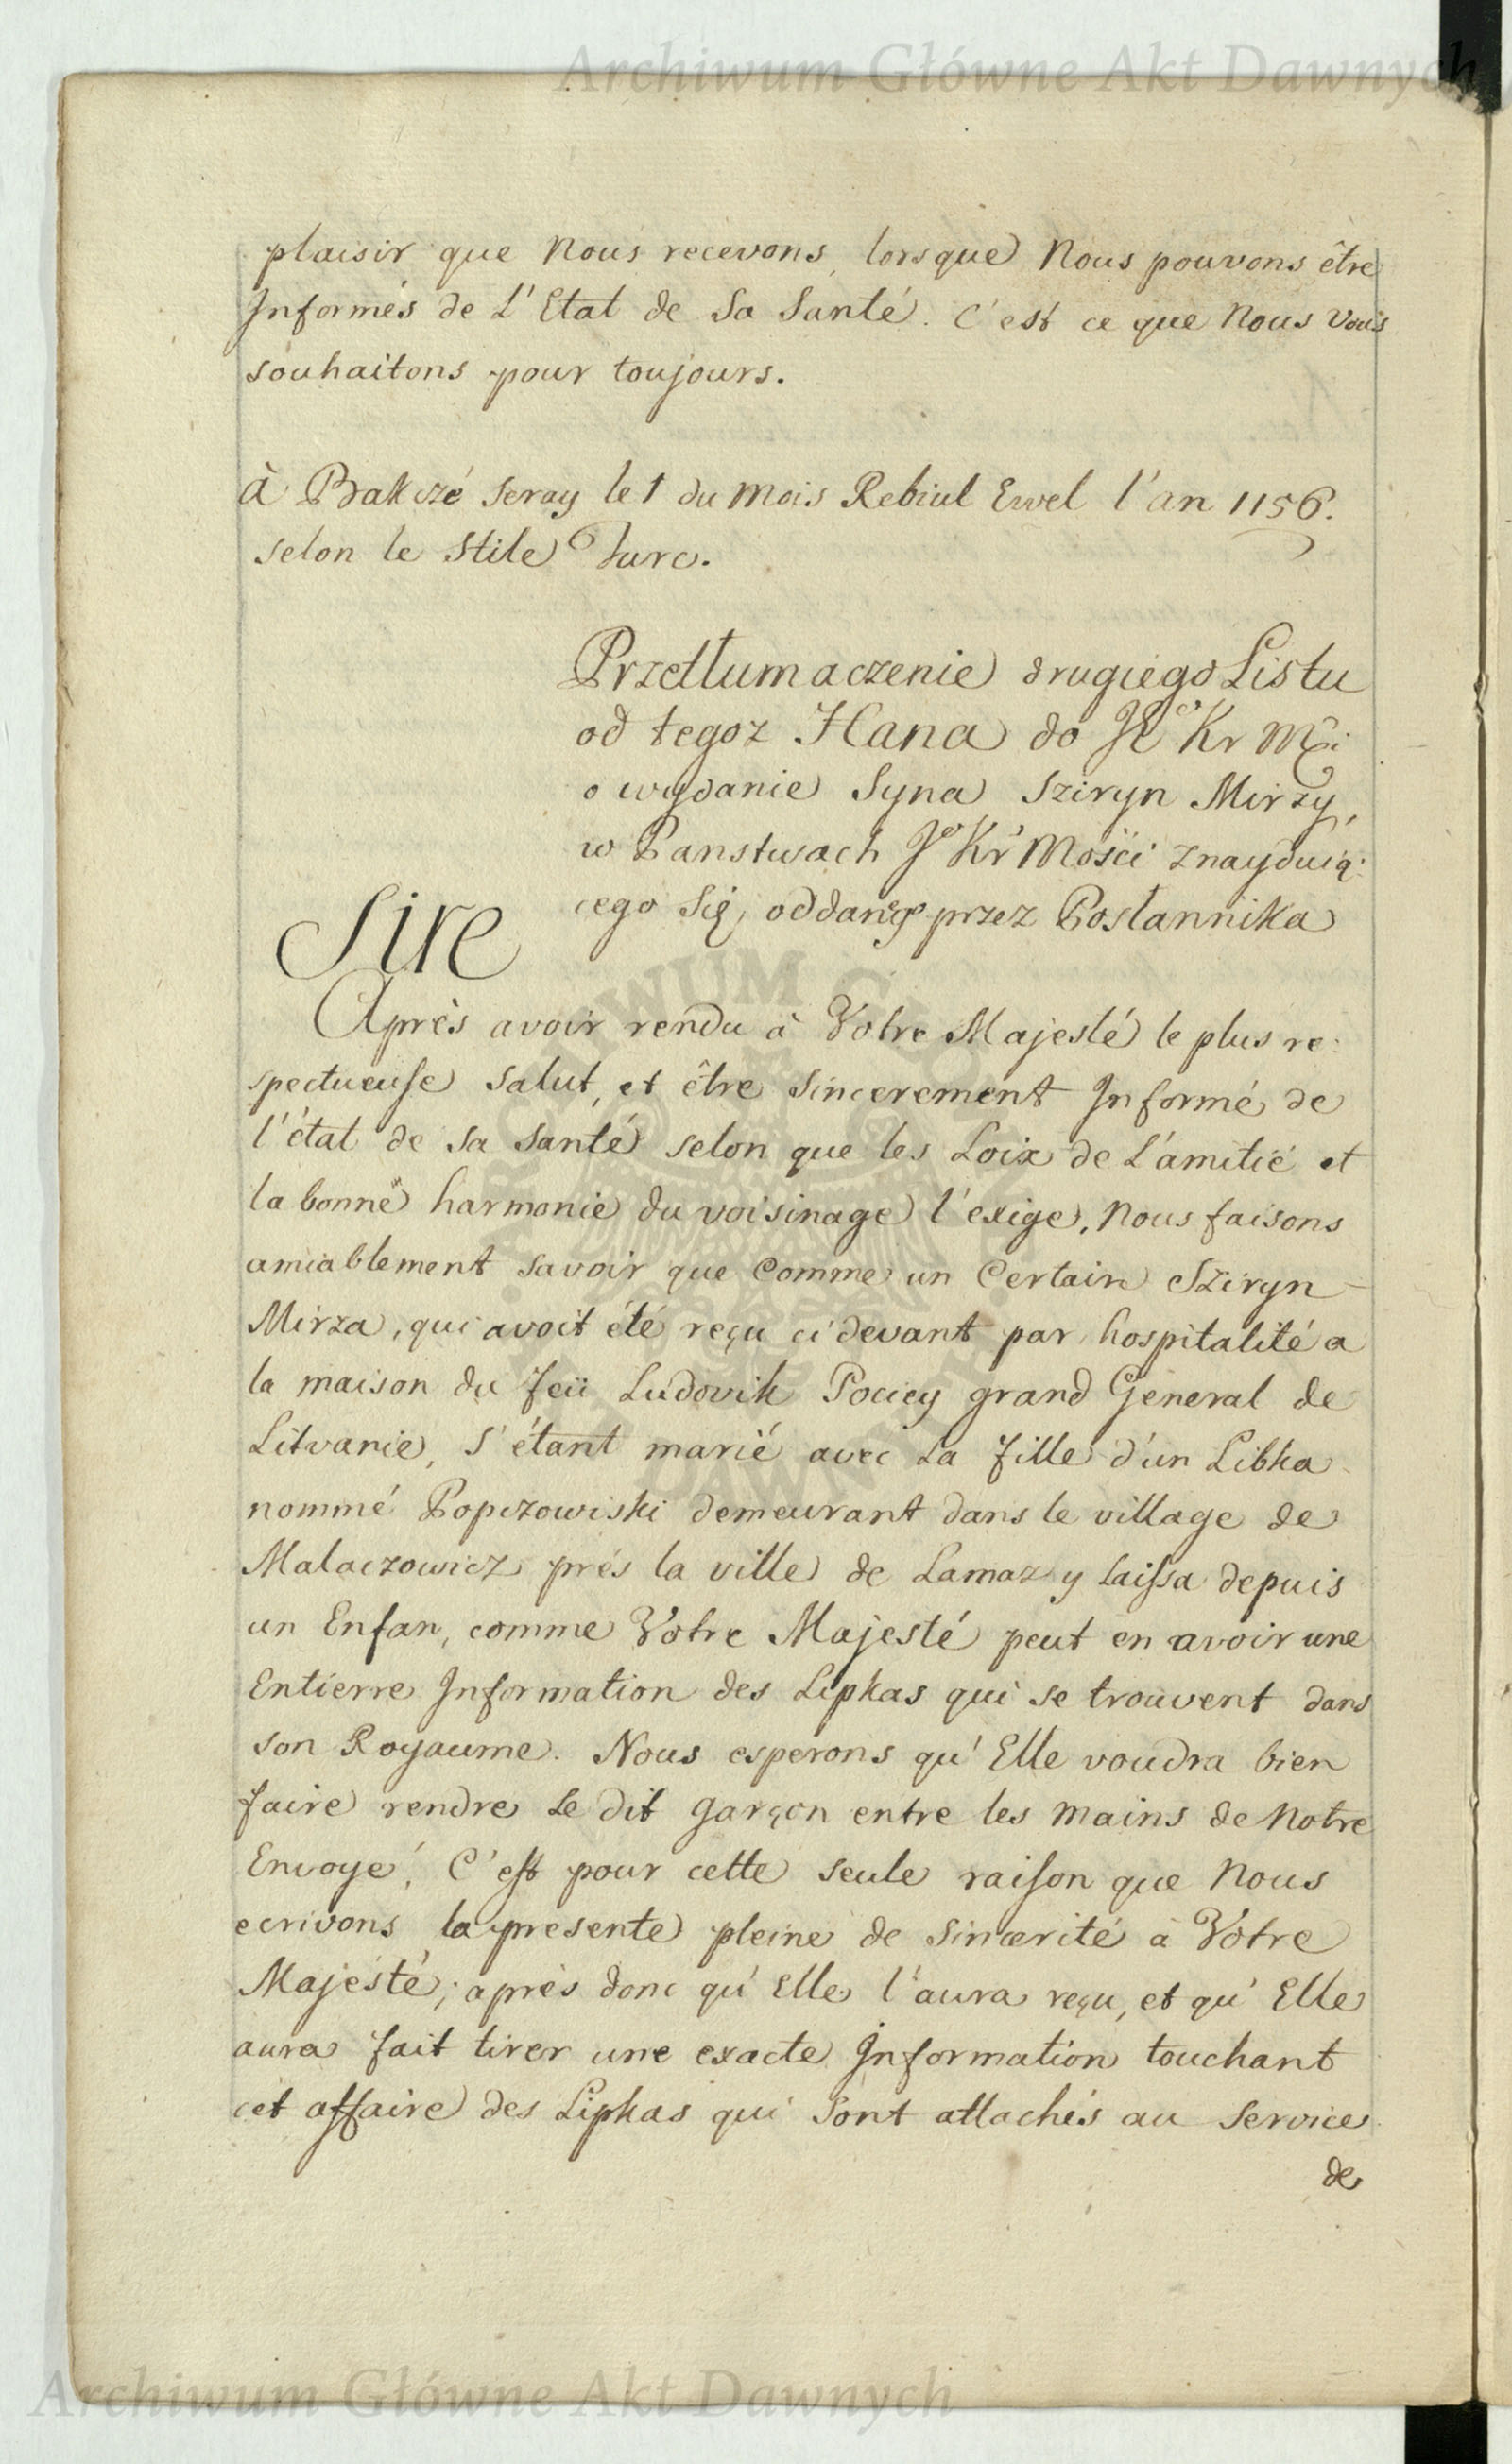 Archiwum Główne Akt Dawnych
plaisir que Nous recevons, lorsque Nous pouvons être
Informés de L'Etat de Sa Santé. C'est ce que Nous Vous
souhaitons pour toujours.
à Bakczé Seray le 1 du Mois Rebiul Ewel l'an 1156.
selon le Stile Turc.
Przetłumaczenie drugiego Listu
od tegoz Hana do Je͠o Kr Mci
o wydanie Syna Sziryn Mirzy,
w Panstwach Jo Kr Mośći znayduią:
cego Się, oddane͠go przez Posłannika
Sire
Après avoir rendu à Votre Majesté le plus re:
spectueuse salut, et être sincerement Informé de
l'état de sa santé selon que les Loix de L'amitié et
la bonne harmonie du voisinage l'exige, Nous faisons
amiablement savoir que Comme un Certain Sziryn
Mirza, qui avoit été reçu ci devant par hospitalité a
la maison du feü Ludovik Pociey grand General de
Litvanie, s'étant marié avec La fille d'un Libka
nommé Popczowiski demeurant dans le village de
Malaczowicz prés la ville de Lamaz y laissa depuis
un Enfan, comme Votre Majesté peut en avoir une
Entierre Information des Lipkas qui se trouvent dans
son Royaume. Nous esperons qu'Elle voudra bien
faire rendre Le dit garçon entre les mains de Notre
Envoye', C'est pour cette seule raison que Nous
ecrivons la presente pleine de sincerité à Votre
Majesté; aprés donc qu'Elle l'aura reçu, et qu'Elle
aura fait tirer une exacte Information touchant
cet affaire des Lipkas qui sont attachés au Service
de
Archiwum Główne Akt Dawnych